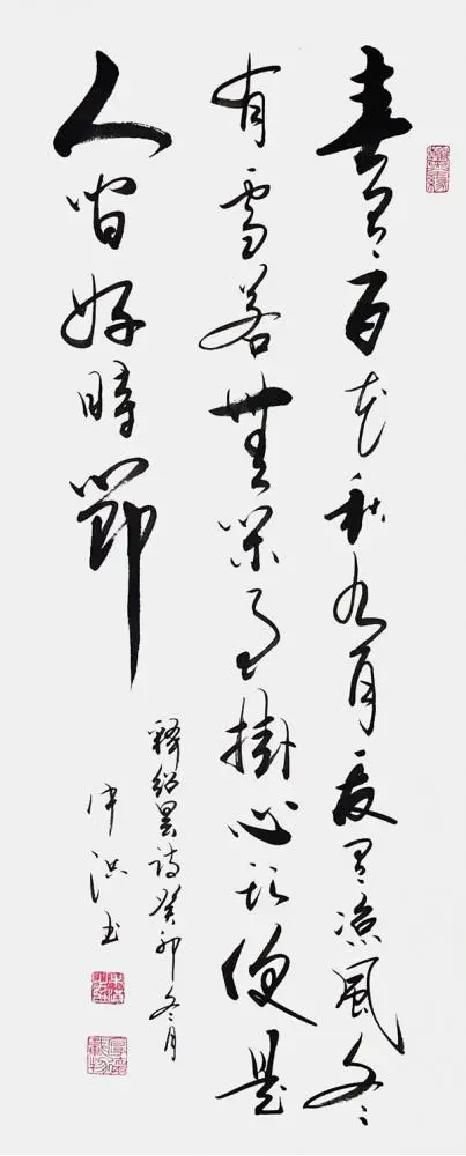 春有百花秋有月夏有涼風冬
有雪若無閑事掛心頭便是
人間好時節
釋紹曇詩癸卯冬月
洪書